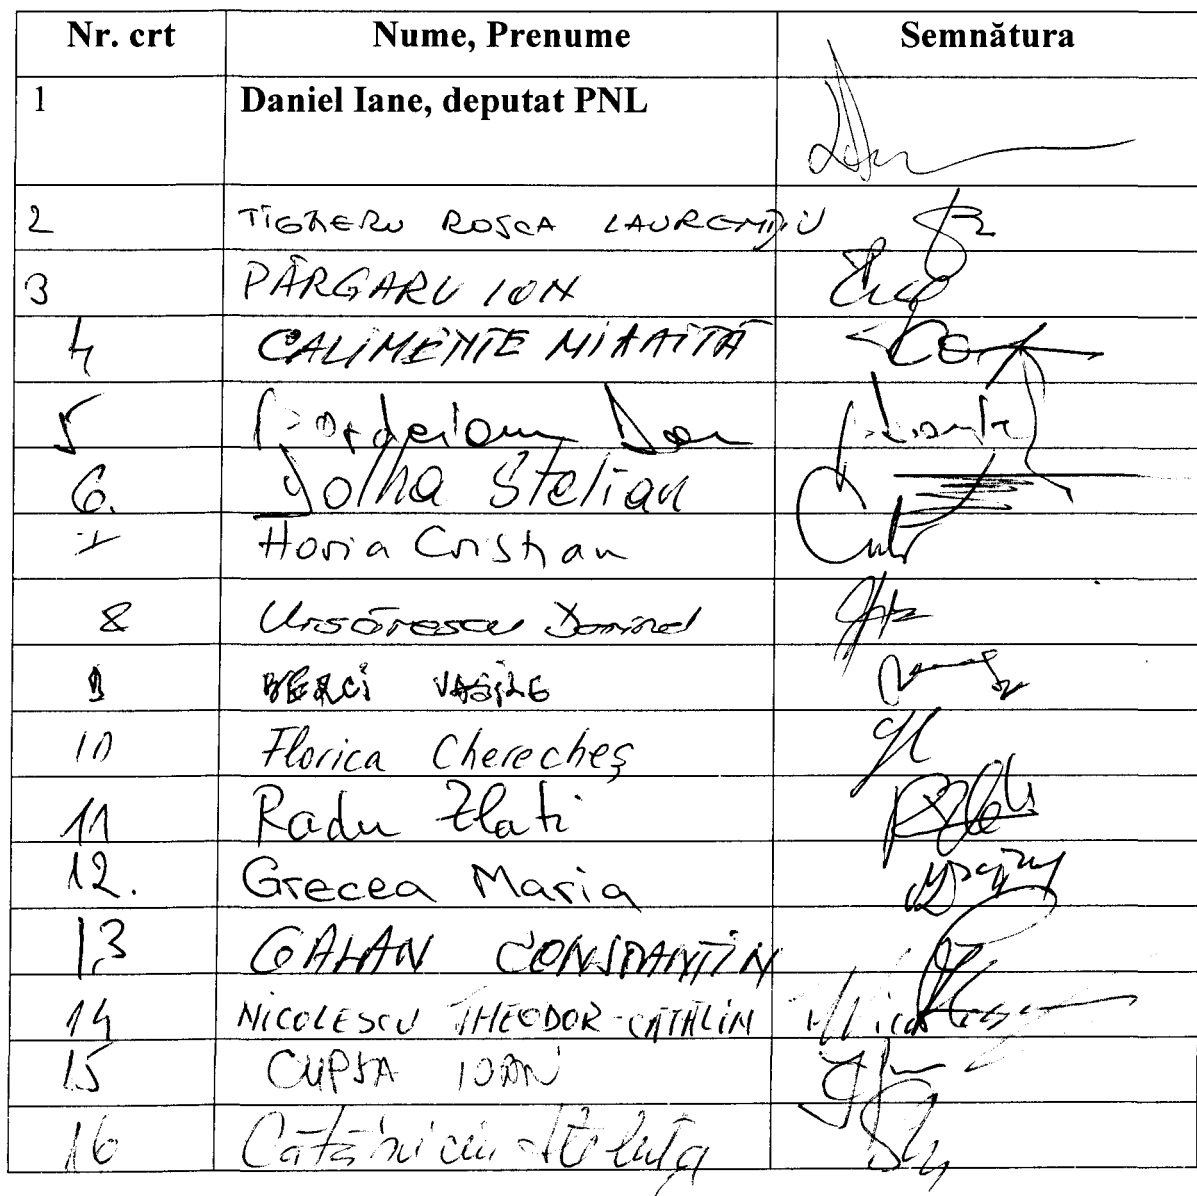 Nr. crt Nume, Prenume Semnătura
1 Daniel Iane, deputat PNL
2 TIGĂERU ROȘCA LAURENȚIU
3 PÂRGARU ION
4 CALIMENTE MIHĂIȚĂ
5 Bordeianu Dan
6. Dolha Stelian
7 Horia Cristian
8 Ursărescu Dorinel
9 BERCI VASILE
10 Florica Cherecheș
11 Radu Zlati
12. Grecea Maria
13 GALAN CONSTANTIN
14 NICOLESCU THEODOR-CĂTĂLIN
15 CUPȘA IOAN
16 Cătăniciu Steluța